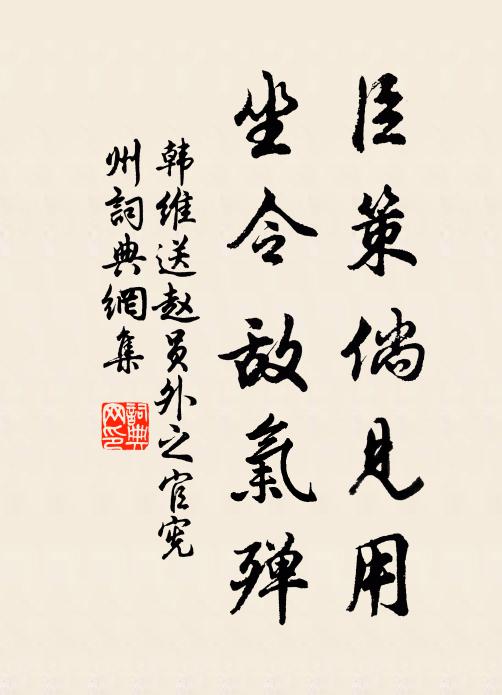 臣策倘見用
坐令敌氣殫
韩維送赵員外之官宪
州詞典網集
詞典网印